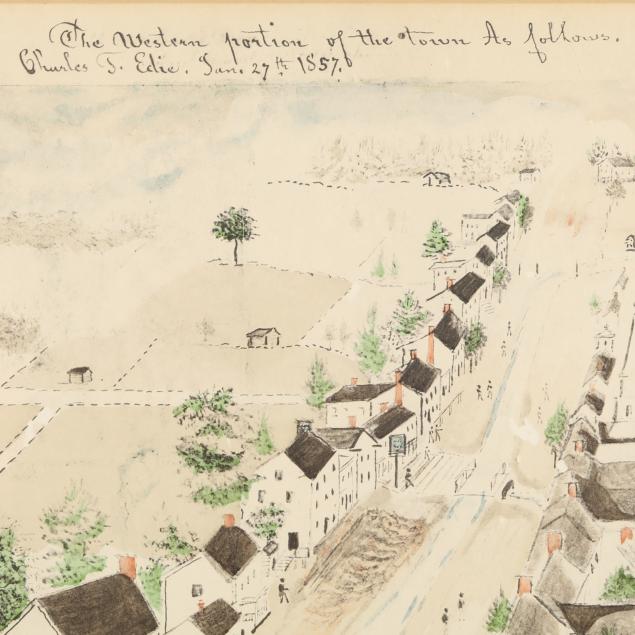 The Western portion of the town As follows.
Charles T. Edie. Jan. 27th 1857.